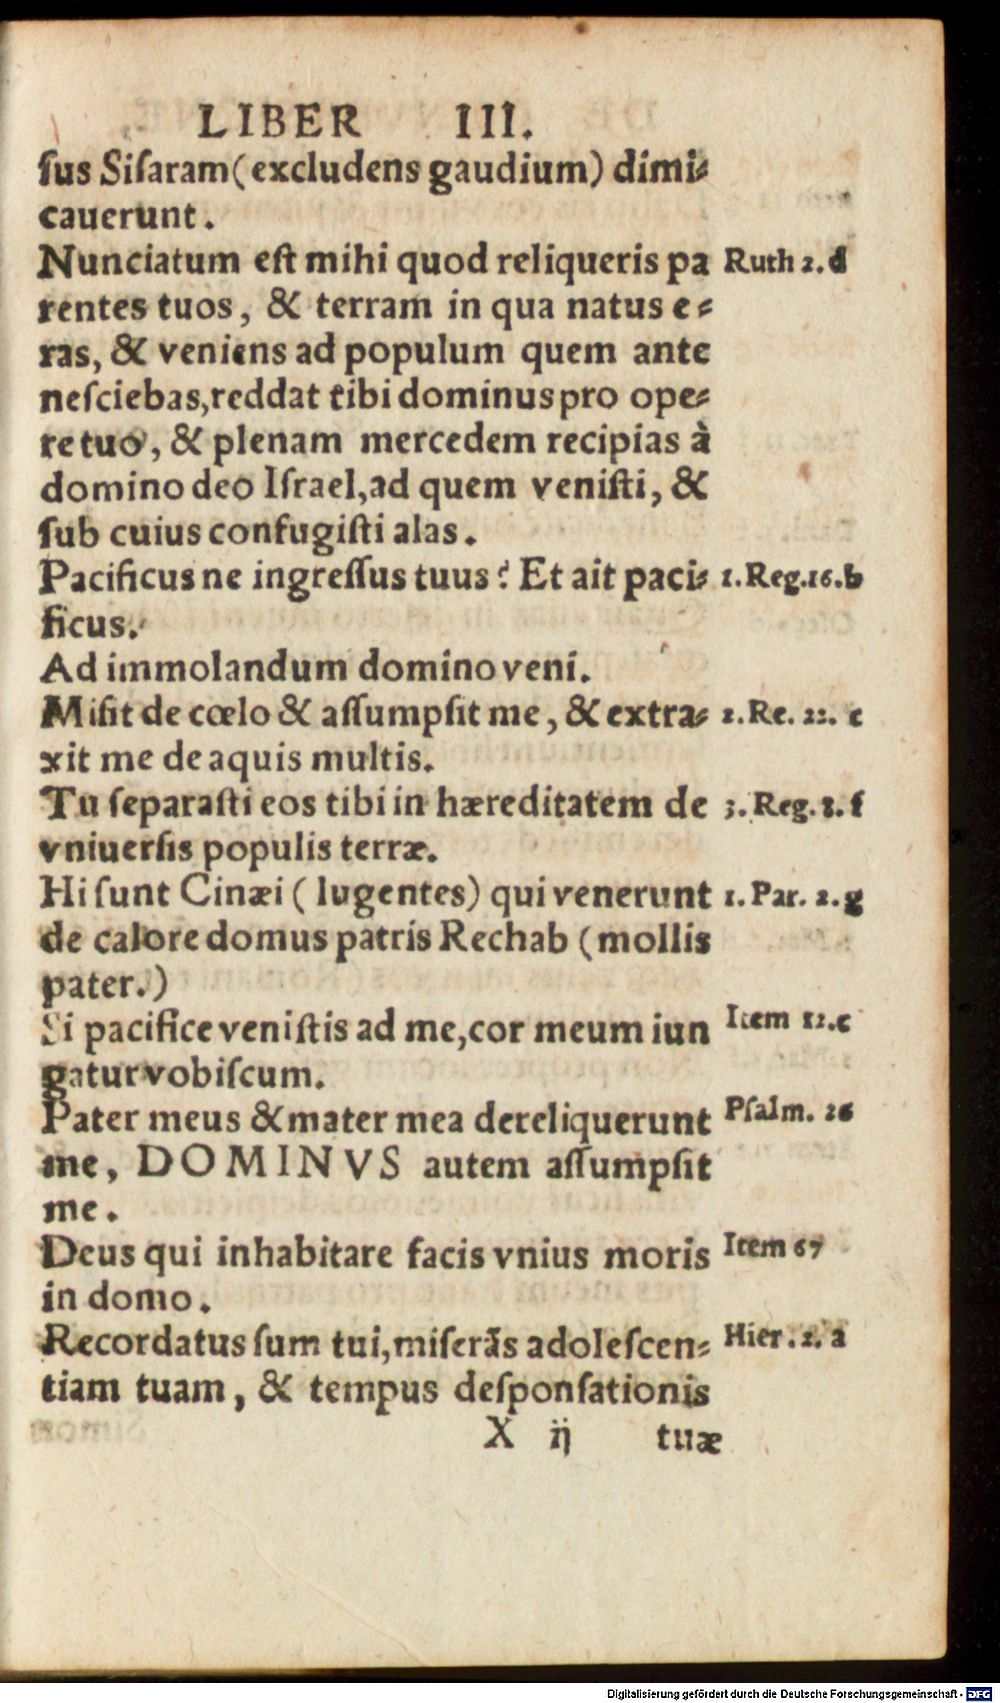 LIBER III.
sus Sisaram (excludens gaudium) dimi⸗
cauerunt.
Nunciatum est mihi quod reliqueris pa Ruth 2. d
rentes tuos, & terram in qua natus e⸗
ras, & veniens ad populum quem ante
nesciebas, reddat tibi dominus pro ope⸗
re tuo, & plenam mercedem recipias à
domino deo Israel, ad quem venisti, &
sub cuius confugisti alas.
Pacificus ne ingressus tuus? Et ait paci⸗ 1. Reg. 16. b
ficus.
Ad immolandum domino veni.
Misit de cœlo & assumpsit me, & extra⸗ 2. Re. 22. c
xit me de aquis multis.
Tu separasti eos tibi in hæreditatem de 3. Reg. 8. f
vniuersis populis terræ.
Hi sunt Cinæi (lugentes) qui venerunt 1. Par. 2. g
de calore domus patris Rechab (mollis
pater.)
Si pacifice venistis ad me, cor meum iun Item 12. c
gatur vobiscum.
Pater meus & mater mea dereliquerunt Psalm. 26
me, DOMINVS autem assumpsit
me.
Deus qui inhabitare facis vnius moris Item 67
in domo.
Recordatus sum tui, miserãs adolescen⸗ Hier. 2. a
tiam tuam, & tempus desponsationis
X ij tuæ
Digitalisierung gefördert durch die Deutsche Forschungsgemeinschaft - DFG